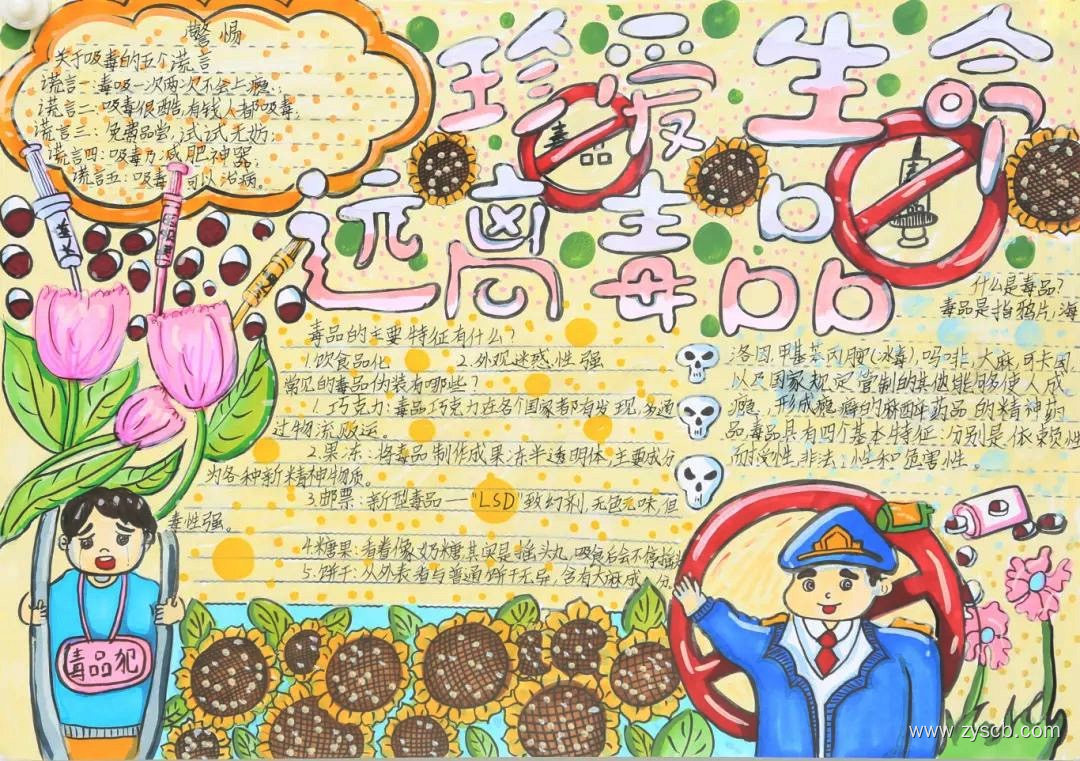 警惕
关于吸毒的五个谎言
谎言一:毒吸一次两次不会上瘾;
谎言二:吸毒很酷,有钱人都吸毒;
谎言三:免费品尝,试试无妨;
谎言四:吸毒乃减肥神器;
谎言五:吸毒可以治病。
珍爱生命
远离毒品
毒品的主要特征有什么?
1.饮食品化 2.外观迷惑性强
常见的毒品伪装有哪些?
1.巧克力:毒品巧克力在各个国家都有发现,多通
过物流贩运。
2.果冻:将毒品制作成果冻半透明体,主要成分
为各种新精神物质。
3.邮票:新型毒品一"LSD"致幻剂,无色无味,但
毒性强。
4.糖果:看着像奶糖,其实是摇头丸,吸食后会不停摇
5.饼干:从外表看与普通饼干无异,含有大麻成分
什么是毒品?
毒品是指鸦片,海
洛因,甲基苯丙胺(冰毒),吗啡,大麻,可卡因,
以及国家规定管制的其他能够使人成
瘾,形成瘾癖的麻醉药品的精神药
品,毒品具有四个基本特征:分别是依赖性
耐受性,非法性和危害性。
毒品犯
www.zyscb.com